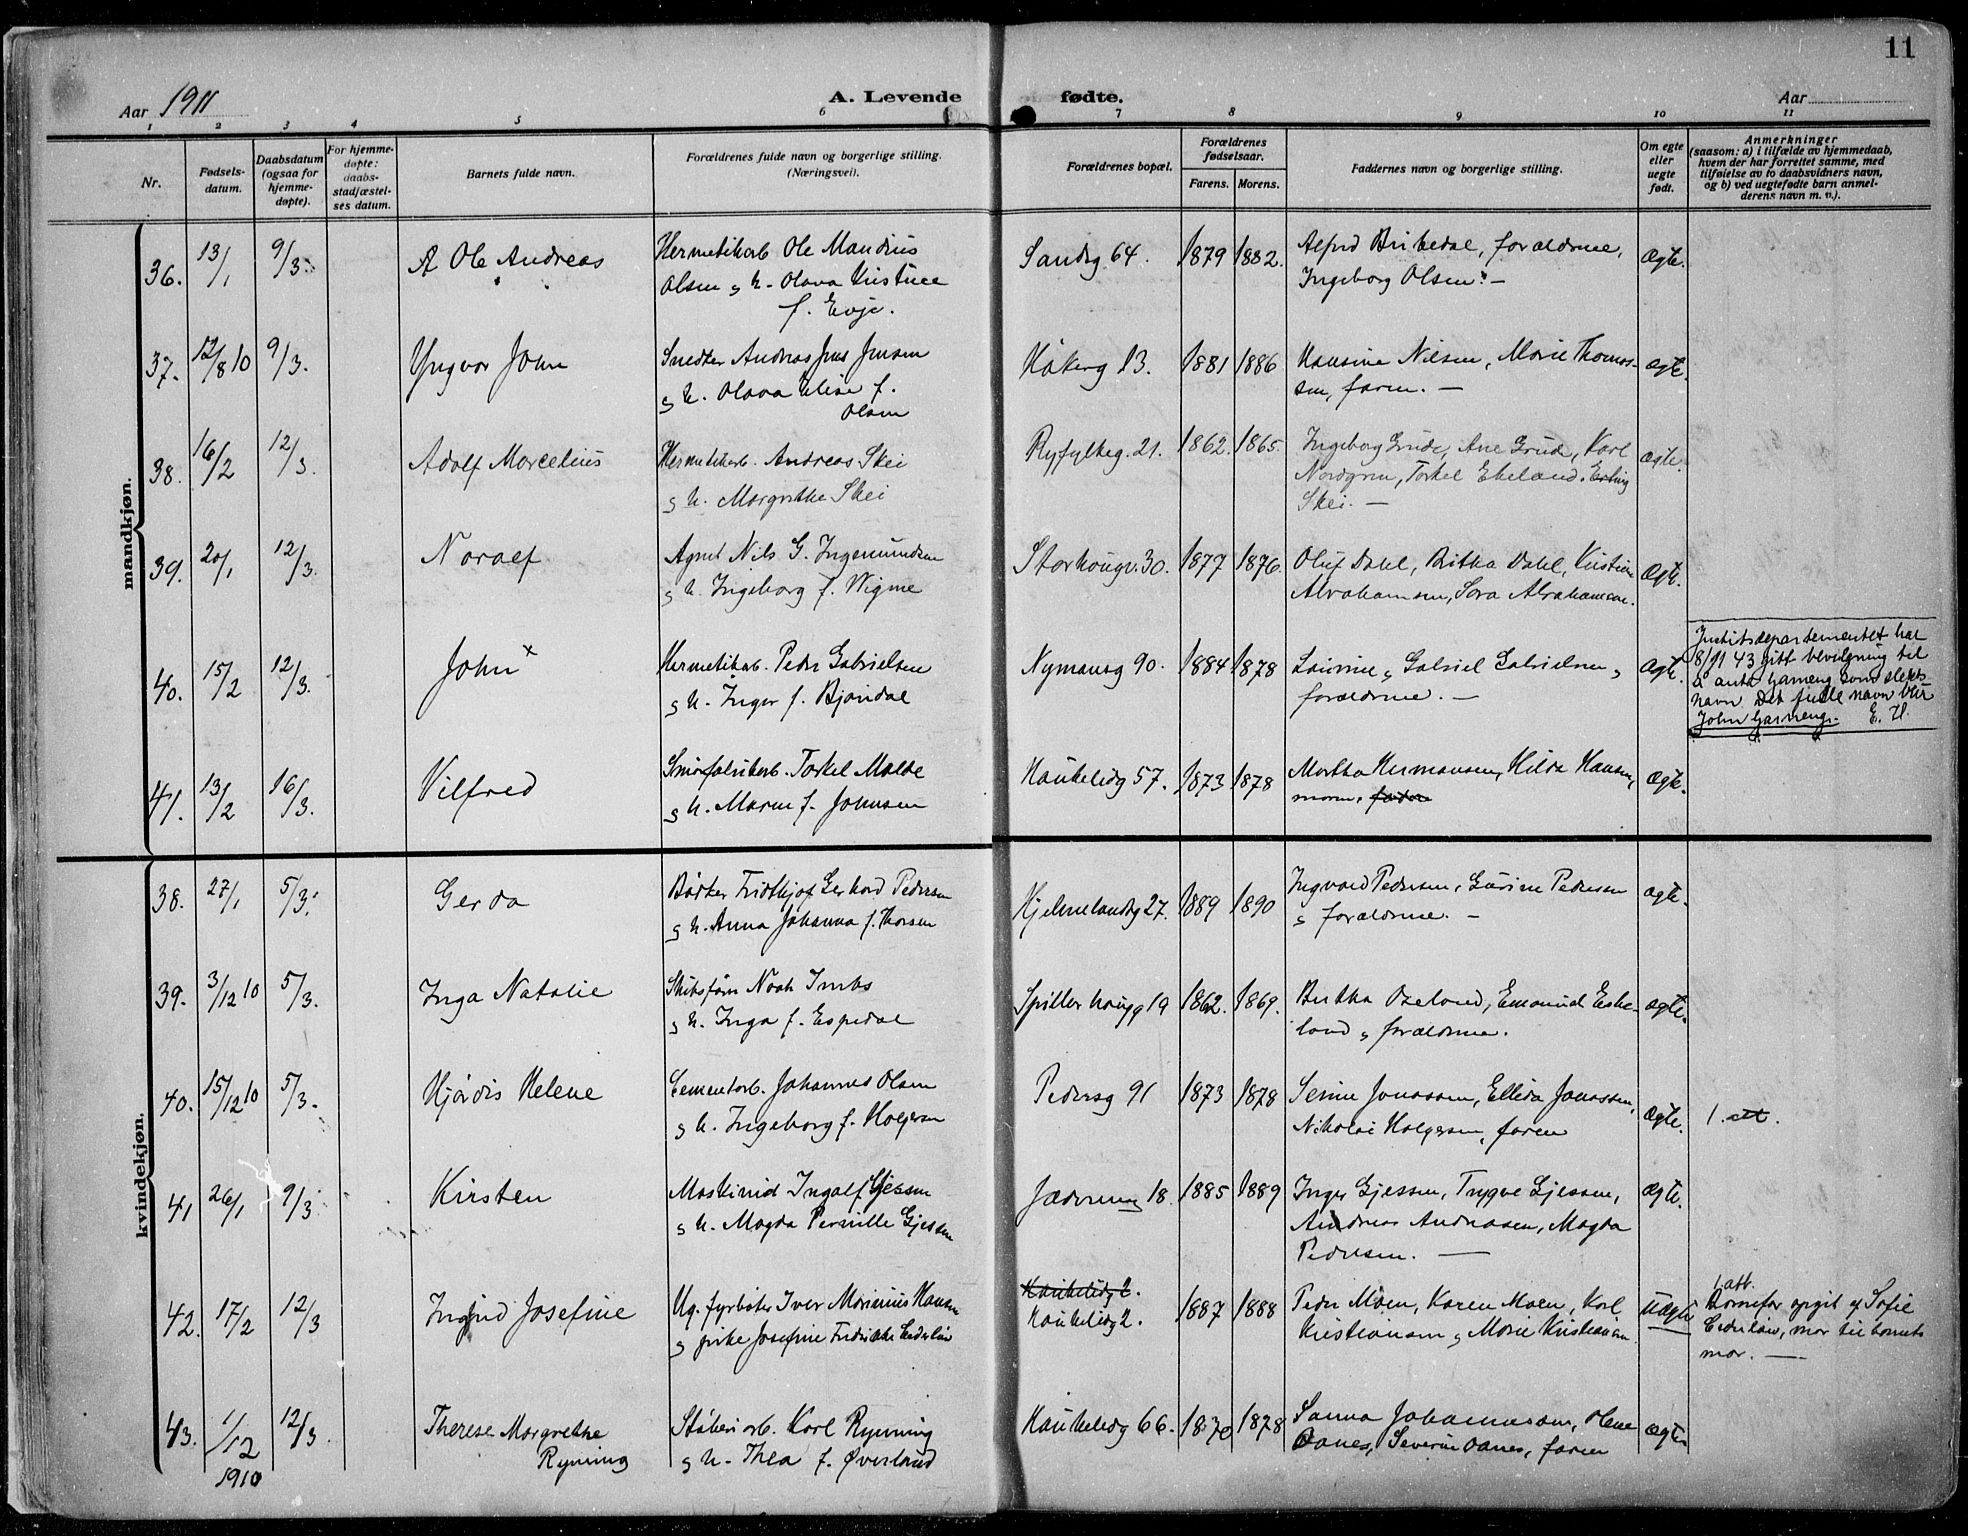 11
Aar 1911
A. Levende fødte.
Aar
1 2 3 4 5 6 7 8 9 10 11
Nr.
Fødsels-
datum.
Daabsdatum
(ogsaa for
hjemme-
døpte).
For hjemme-
døpte:
daabs-
stadfæstel-
ses datum.
Barnets fulde navn.
Forældrenes fulde navn og borgerlige stilling.
(Næringsvei).
Forældrenes bopæl.
Forældrenes
fødselsaar.
Farens. Morens.
Faddernes navn og borgerlige stilling.
Om egte
eller
uegte
født.
Anmerkninger
(saasom: a) i tilfælde av hjemmedaab,
hvem der har forrettet samme, med
tilføielse av to daabsvidners navn,
og b) ved uegtefødte barn anmel-
derens navn m. v.).
mandkjøn.
36. 13/1 9/3 A Ole Andreas
Hermetikarb Ole Mandius
Olsen g h. Olava Kristine
f. Evje.
Sandsg 64. 1879 1882.
Alfred Birkedal, forældrene,
Ingeborg Olsen. —
Ægte.
37. 12/8 10 9/3. Yngvar John
Snedker Andreas Jens Jensen
g h. Olava Elise f.
Olsen
Håkeg 13. 1881 1886
Hansine Nilsen, Marie Thomas-
sen, faren. —
ægte.
38. 16/2 12/3. Adolf Marcelius
Hermetikarb. Andreas Skei
g h. Margrethe Skei
Ryfylkeg. 21. 1862. 1865.
Ingeborg Grude, Ane Grud, Karl
Nordgren, Torkel Ekeland. Erling
Skei. —
ægte.
39. 20/1 12/3. Noralf
Agent Nils G. Ingemundsen
g h. Ingeborg f. Wigme
Storhougv. 30. 1877 1876.
Oluf Dahl, Britha Dahl, Kristine
Abrahamsen, Sara Abrahamsen.
Ægte.
40. 15/2 12/3. John x
Hermetikarb. Peder Gabrielsen
g h. Inger f. Bjöndal
Nymansg 90. 1884 1878
Gabriel Gabrielsen,
forældrene. —
Ægte.
Justitsdepartementet har
8/11 43 gitt bevilgning til
å anta Garneng som slekts-
navn. Det fulle navn blir
John Garneng. E. H.
41. 13/2 16/3. Vilfred
Torkel Malde
g h. Maren f. Johnsen
Haukelidg 57. 1873 1878
Martha Hermansen, Hilda Hansen,
moren,
Ægte.
kvindekjøn.
38. 27/1 5/3. Gerda
Bödker Fridthjof Gerhard Pedersen
g h. Anna Johanna f. Thorsen
Hjelmelandsg 27. 1889 1890
Ingvald Pedersen, Gurine Pedersen
g forældrene. —
ægte.
39. 3/12 10 5/3. Inga Natalie
Skibsförer Noah Imbs
g h. Inga f. Espedal
Spilderhaugg 19 1862. 1869.
Bertha Ozeland, Emanuel Eske-
land g forældrene.
ægte.
40. 15/12 10 5/3. Hjördis Helene
Cementarb. Johannes Olsen
g h. Ingeborg f. Holgersen
Pedersg 91 1873 1878
Serine Jonassen, Ellida Jonassen,
Nikolai Holgersen, faren
Ægte.
1. att.
41. 26/1 9/3. Kirsten
Maskinid Ingolf Gjessen
g h. Magda Pernille Gjessen
Jæderveien 18. 1885 1889
Inger Gjessen, Trygve Gjessen,
Andreas Andreasen, Magda
Pedersen. —
Ægte.
42. 17/2 12/3 Ingrid Josefine
Ug. fyrböter Iver Marinius Hansen
g pike Josefine Fredrikke Cederløv
Haukelidg 2.
Haukelidg 2. 1887 1888
Peder Moen, Karen Moen, Karl
Kristiansen g Marie Kristiansen
Uægte
1 att.
Barnefar opgit af Sofie
Cederløv, mor til barnets
mor. —
43. 1/12 1910 12/3. Therese Margrethe
Ryning
Støberiarb. Karl Rynning
g h. Thea f. Øverland
Haukelidg 66. 1870 1878
Sanna Johannessen, Olene
Oanes, Severin Oanes, faren
ægte